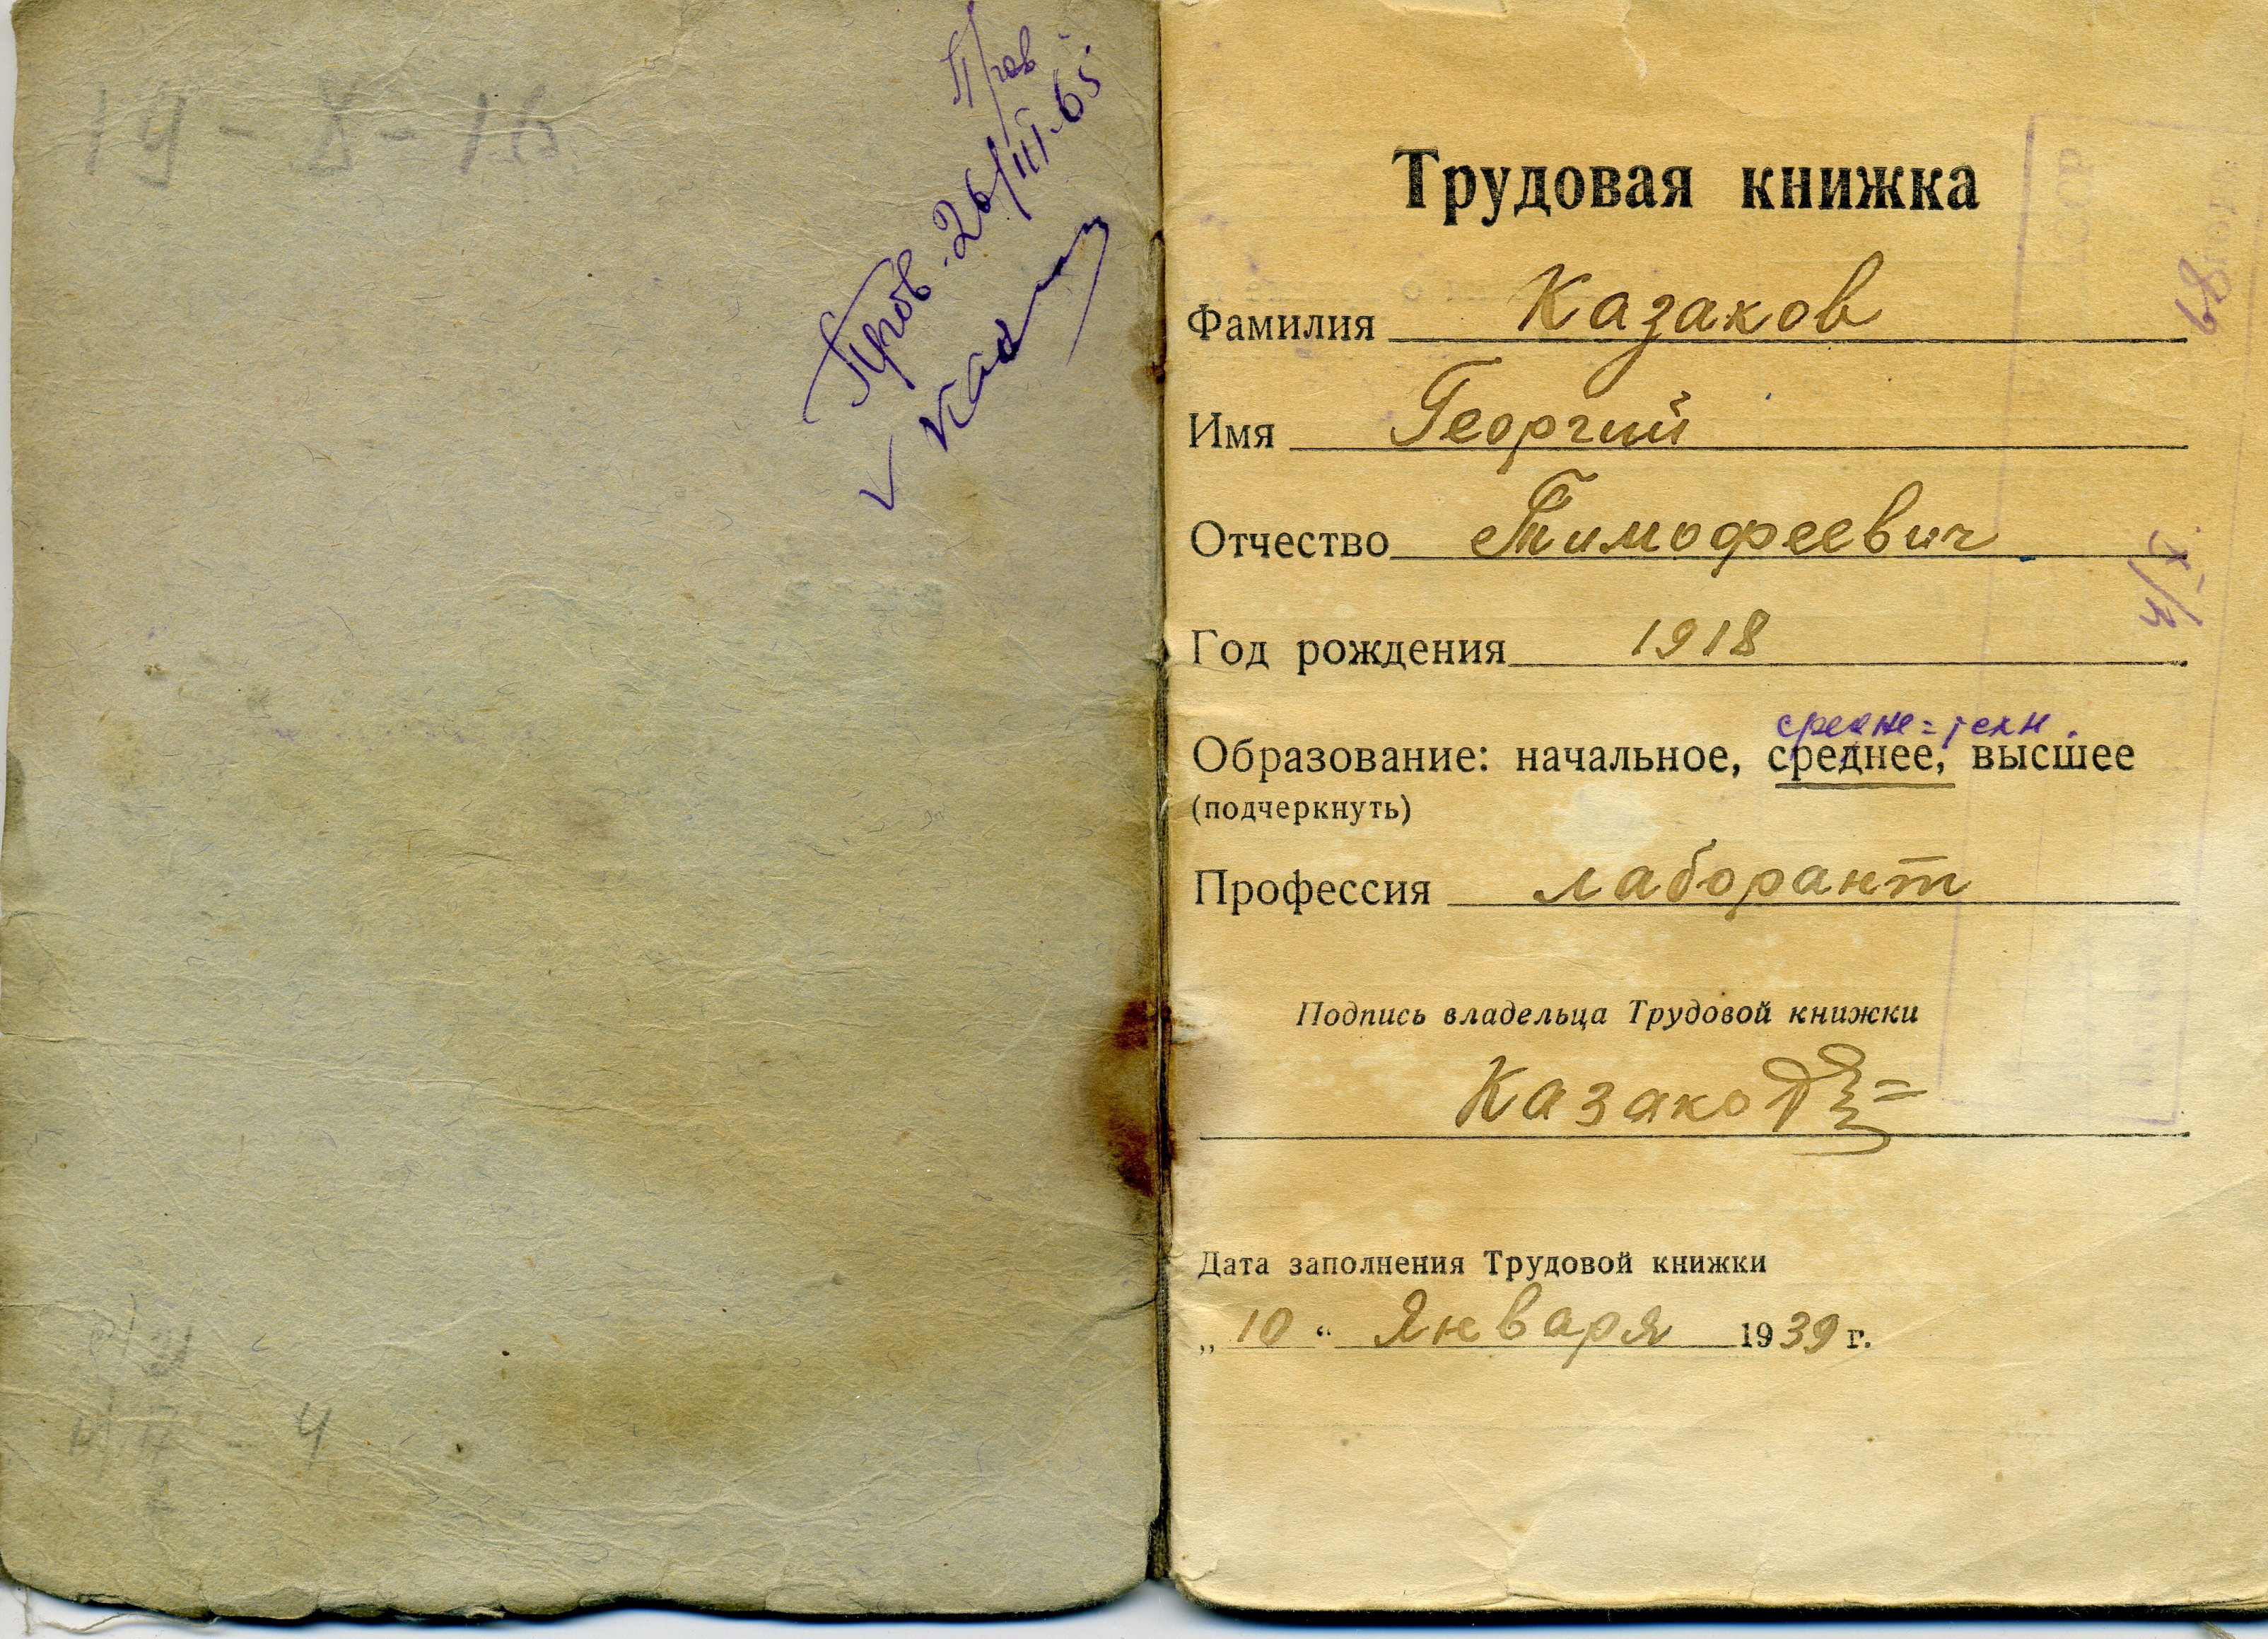 Пров
Пров. 26/III-65
Трудовая книжка
Фамилия Казаков
Имя Георгий
Отчество Тимофеевич
Год рождения 1918
средне=техн.
Образование: начальное, среднее, высшее
(подчеркнуть)
Профессия лаборант
Подпись владельца Трудовой книжки
Казаков
Дата заполнения Трудовой книжки
„10“ Января 1939 г.